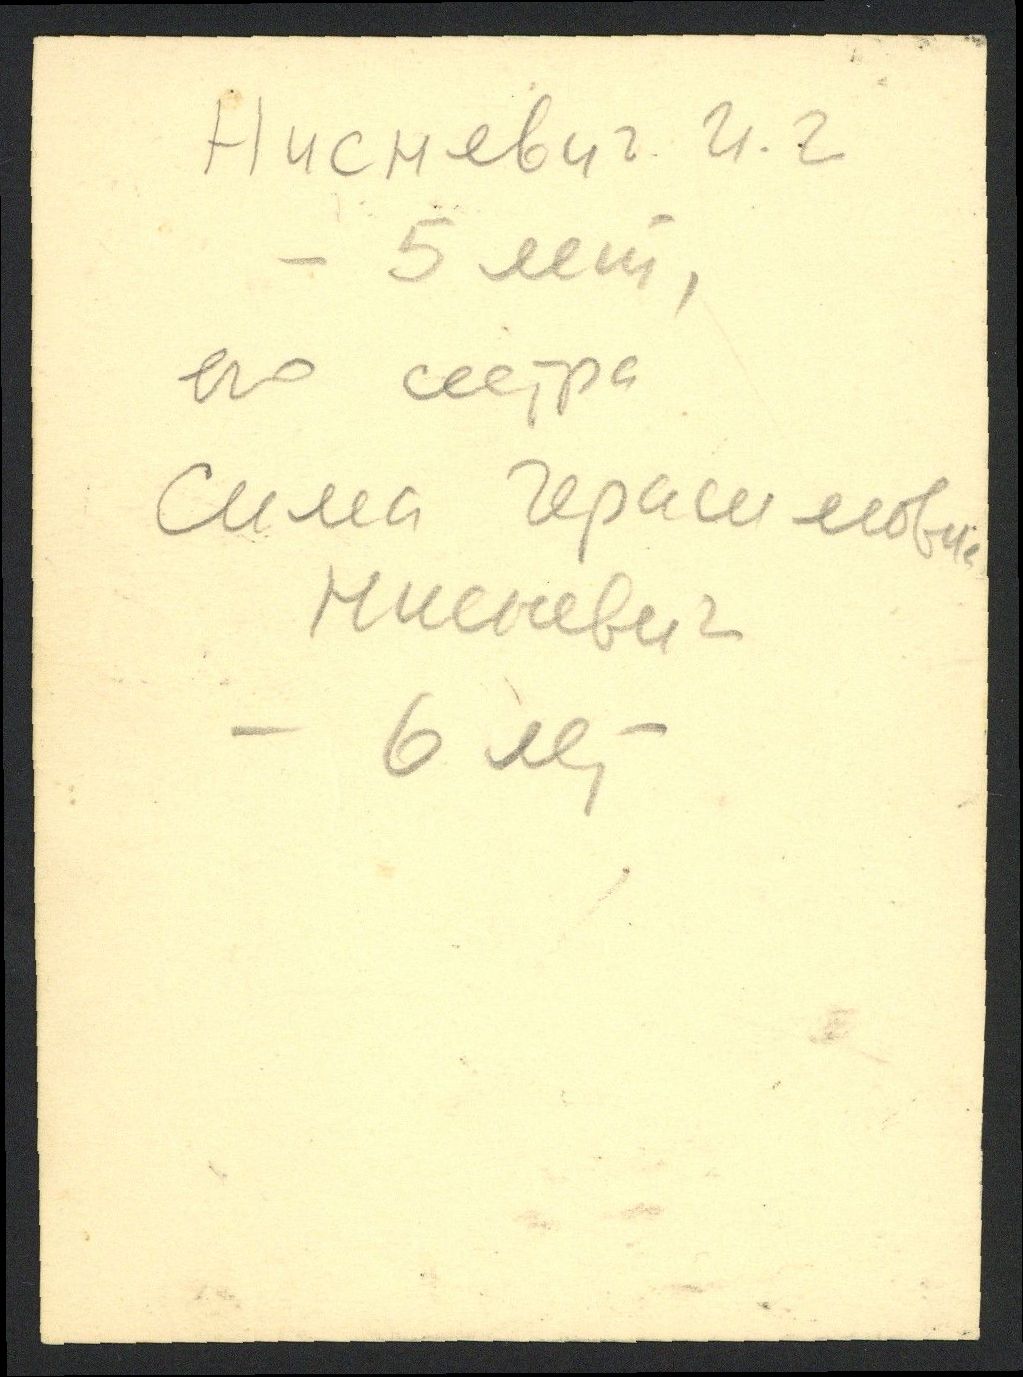 Нисневич И. Г
- 5 лет,
его сестра
Сима Герасимовна
Нисневич
- 6 лет